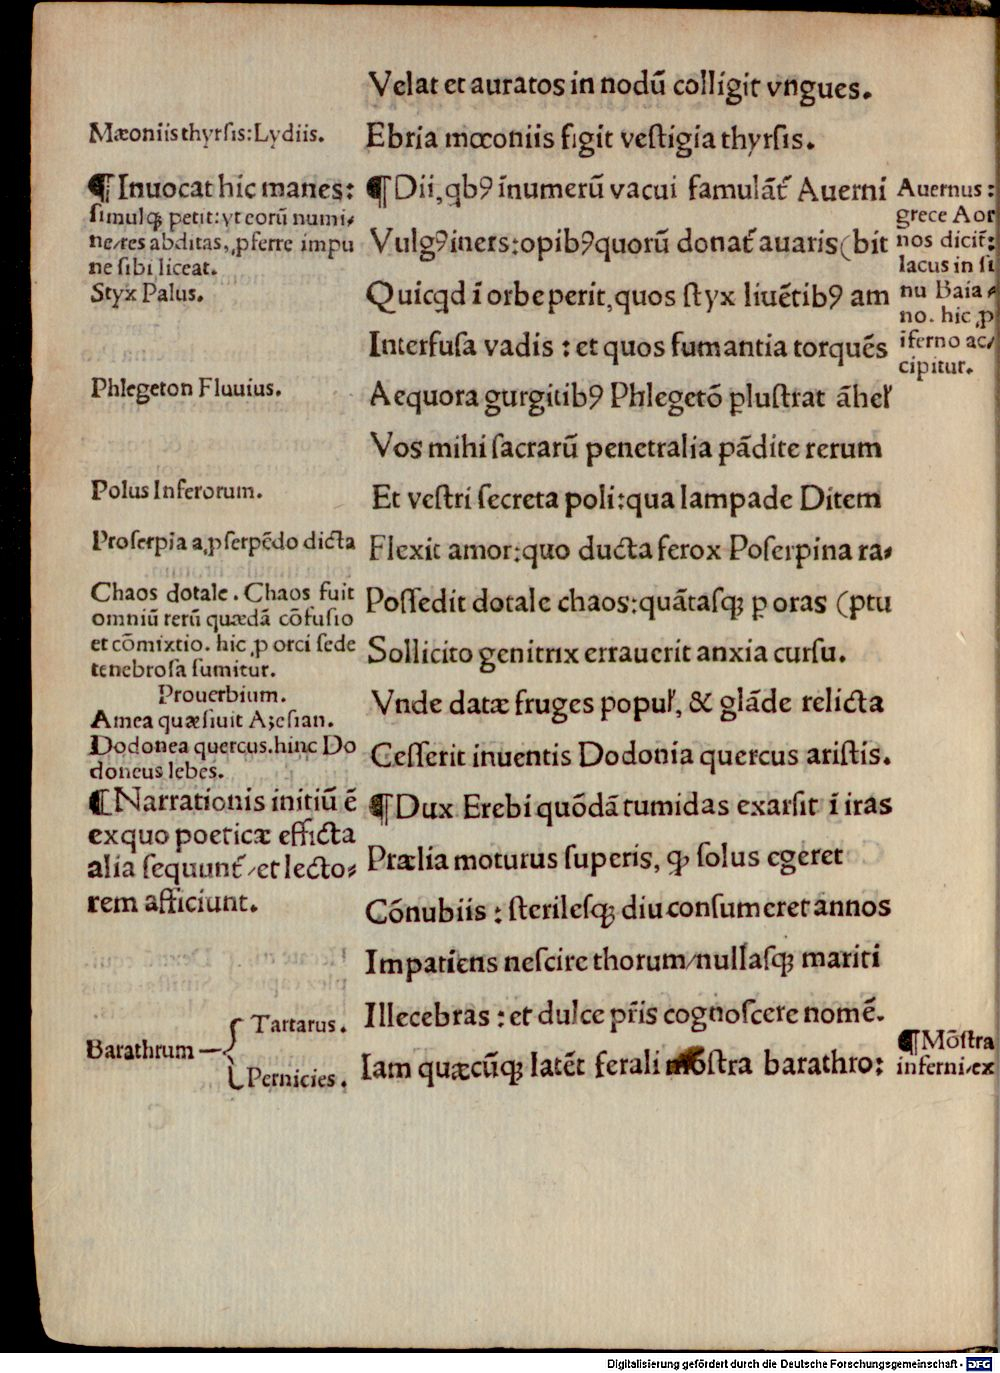 Velat et auratos in nodū colligit vngues.
Ebria mœoniis figit veſtigia thyrſis.
¶ Dii, qbꝰ īnumerū vacui famulāt̄ Auerni
Vulgꝰ iners: opibꝰ quorū donat̄ auaris (bit
Quicqd ī orbe perit, quos ſtyx liuētibꝰ am
Interfuſa vadis : et quos fumantia torquēs
Aequora gurgitibꝰ Phlegetō pluſtrat āhel̄
Vos mihi ſacrarū penetralia pādite rerum
Et veſtri ſecreta poli: qua lampade Ditem
Flexit amor: quo ducta ferox Poſerpina ra⸗
Poſſedit dotale chaos: quātaſꝗ p oras (ptu
Sollicito genitrix errauerit anxia curſu.
Vnde datæ fruges popul̄, & glāde relicta
Ceſſerit inuentis Dodonia quercus ariſtis.
¶ Dux Erebi quōdā tumidas exarſit ī iras
Prælia moturus ſuperis, ꝙ ſolus egeret
Cōnubiis : ſterileſꝗ diu conſumeret annos
Impatiens neſcire thorum/ nullaſꝗ mariti
Illecebras : et dulce pr̄is cognoſcere nomē.
Iam quæcūꝗ latēt ferali mōſtra barathro:
Mæoniis thyrſis: Lydiis.
¶ Inuocat hic manes:
ſimulꝗ petit: vt eorū numi⸗
ne/ res abditas, ꝓferre impu
ne ſibi liceat.
Styx Palus.
Phlegeton Fluuius.
Polus Inferorum.
Proſerpīa a ꝓſerpēdo dicta
Chaos dotale. Chaos fuit
omniū rerū quædā cōfuſio
et cōmixtio. hic ꝓ orci ſede
tenebroſa ſumitur.
Prouerbium.
Amea quæſiuit Azeſian.
Dodonea quercus. hinc Do
doneus lebes.
¶ Narrationis initiū ē
exquo poeticæ efficta
alia ſequunt̄/ et lecto⸗
rem afficiunt.
Barathrum — { Tartarus.
Pernicies.
Auernus :
grece Aor
nos dicit̄:
lacus in ſi
nu Baia⸗
no. hic ꝓ
īferno ac⸗
cipitur.
¶ Mōſtra
inferni/ ex
Digitalisierung gefördert durch die Deutsche Forschungsgemeinschaft - DFG